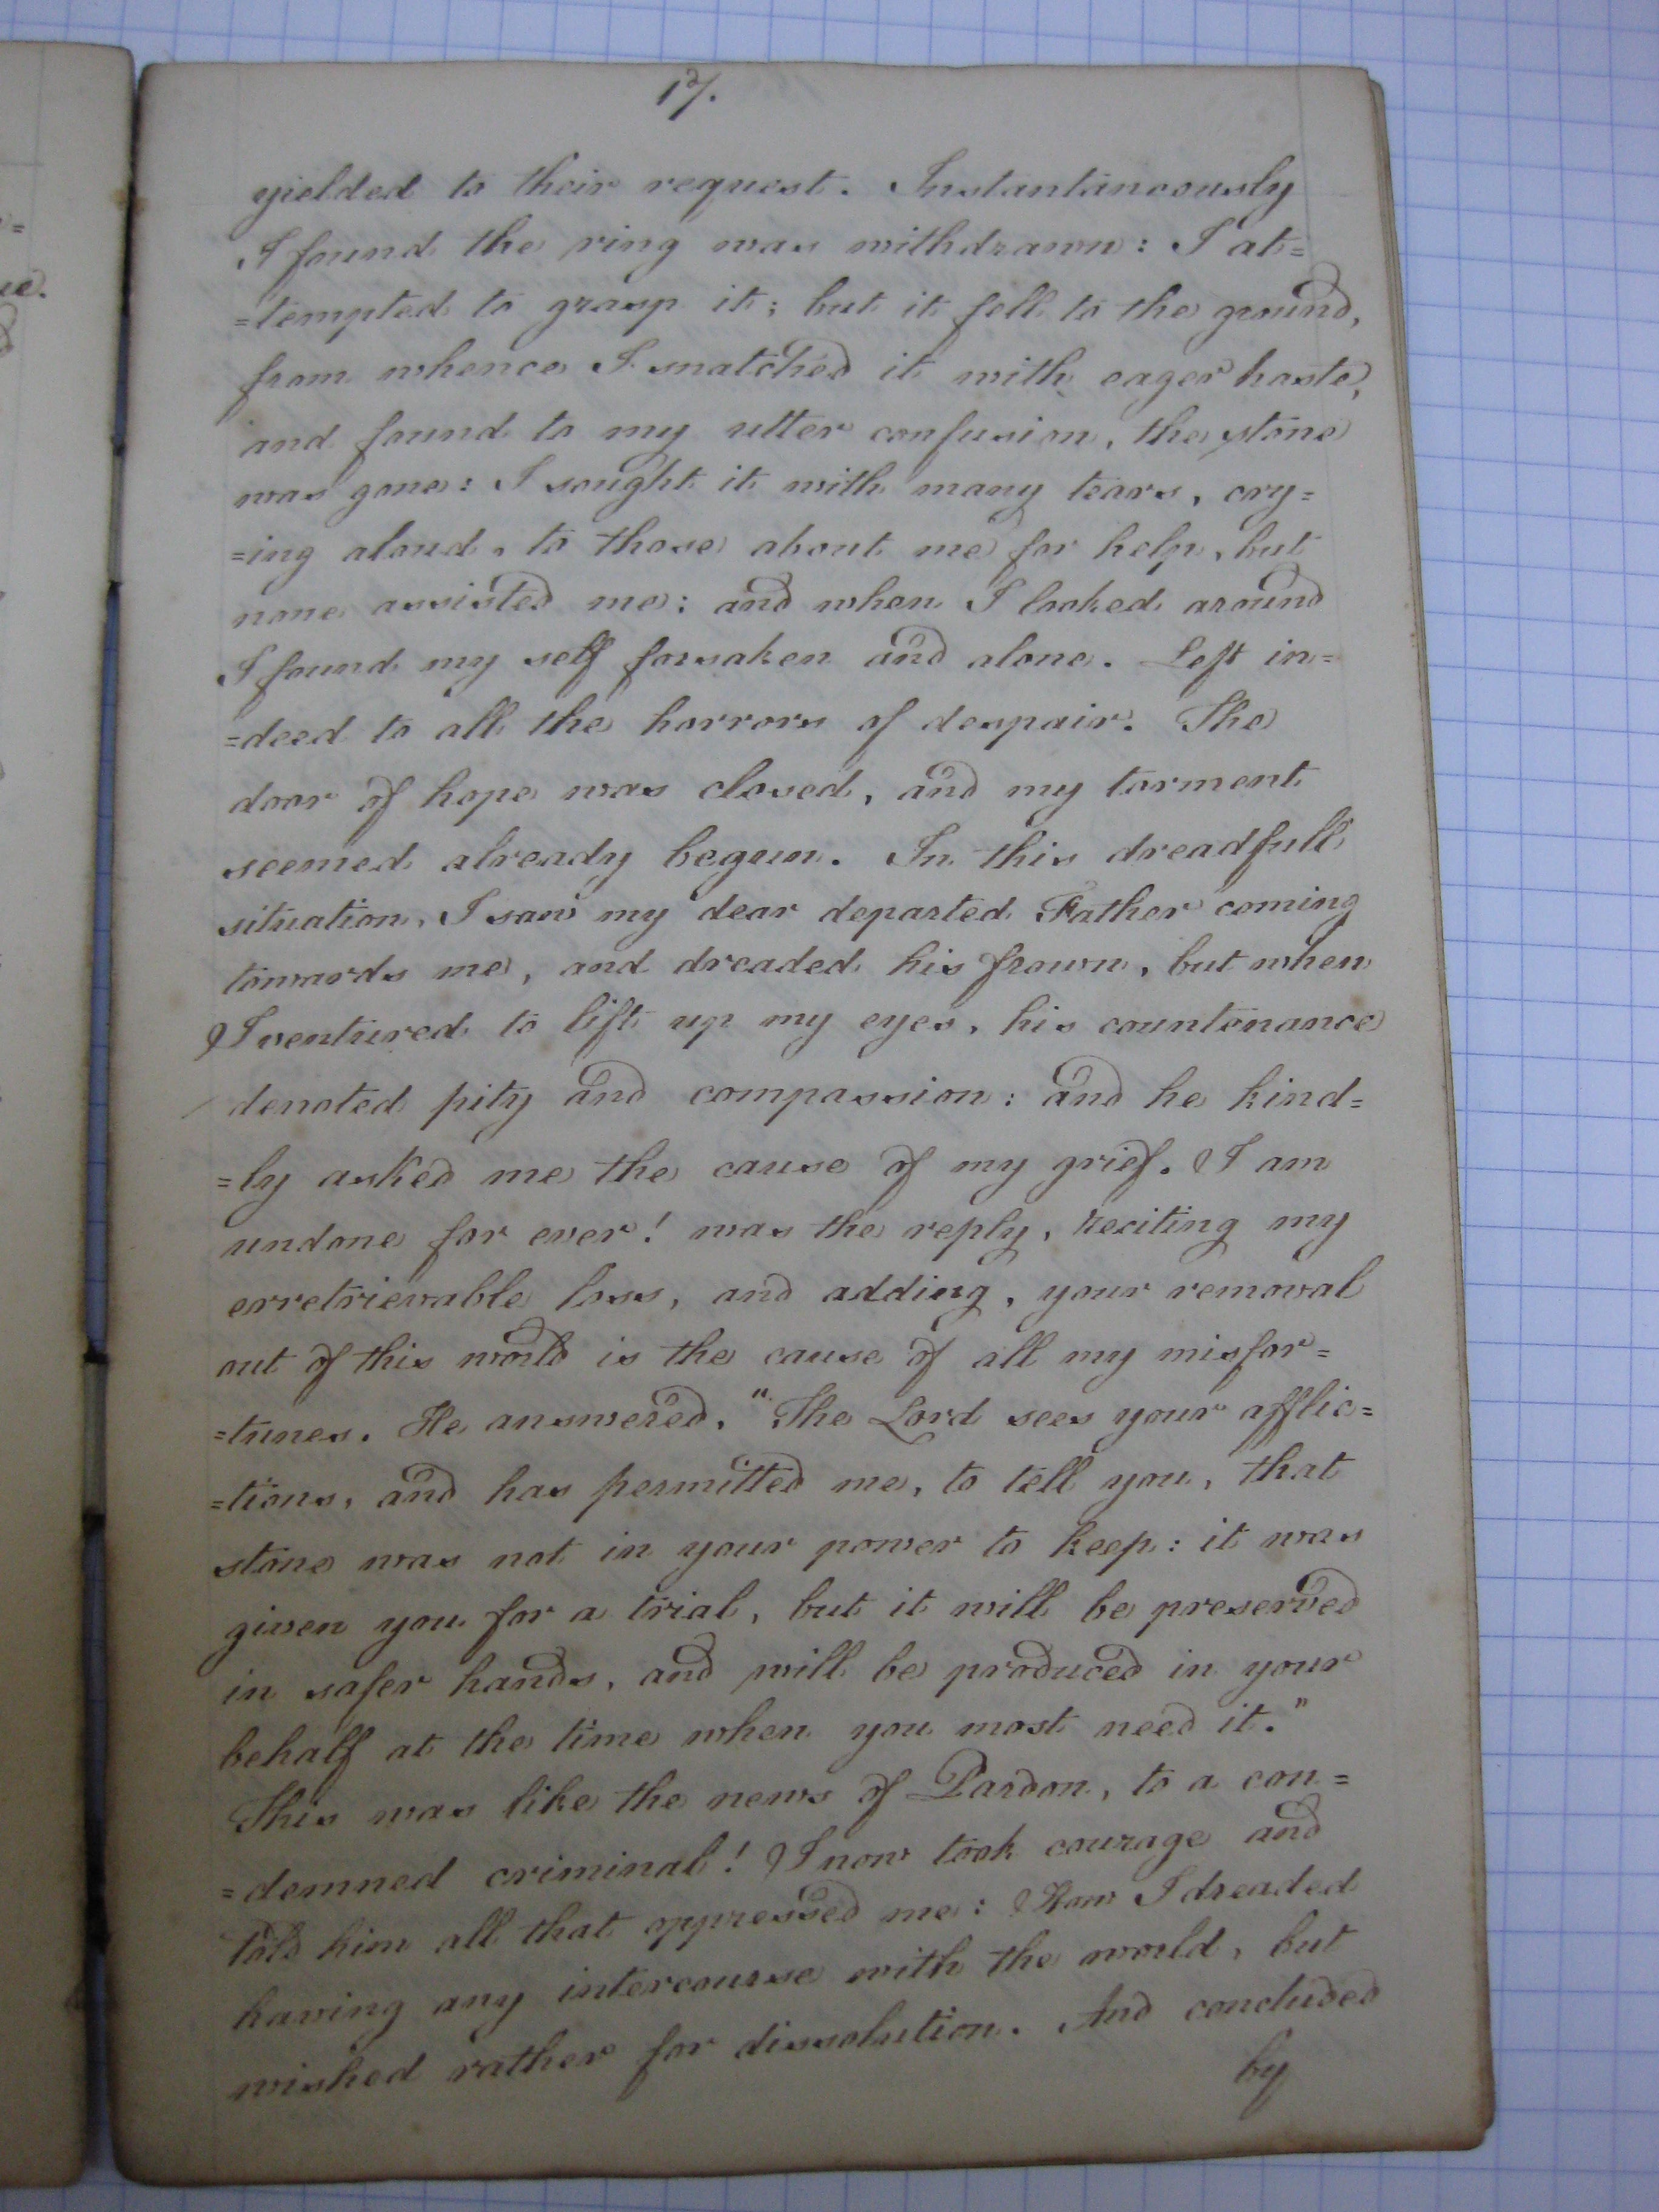 17.
yielded to their request. Instantaneously
I found the ring was withdrawn: I at=
=tempted to grasp it; but it fell to the ground,
from whence I snatched it with eager haste,
and found to my utter confusion, the stone
was gone: I sought it with many tears, cry=
=ing aloud, to those about me for help, but
none assisted me: and when I looked around
I found my self forsaken and alone. Left in=
=deed to all the horrors of despair. The
door of hope was closed, and my torment
seemed already begun. In this dreadfull
situation, I saw my dear departed Father coming
towards me, and dreaded his frown, but when
I ventured to lift up my eyes, his countenance
denoted pity and compassion: and he kind=
=ly asked me the cause of my grief. I am
undone for ever! was the reply, reciting my
erretrievable loss, and adding, your removal
out of this world is the cause of all my misfor=
=tunes. He answered, "The Lord sees your afflic=
=tions, and has permitted me, to tell you, that
stone was not in your power to keep: it was
given you for a trial, but it will be preserved
in safer hands, and will be produced in your
behalf at the time when you most need it."
This was like the news of Pardon, to a con=
=demned criminal! I now took courage and
told him all that oppressed me: How I dreaded
having any intercourse with the world, but
wished rather for dissolution. And concluded
by